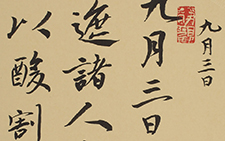 九月三日
九月三日
諸人
以酸割